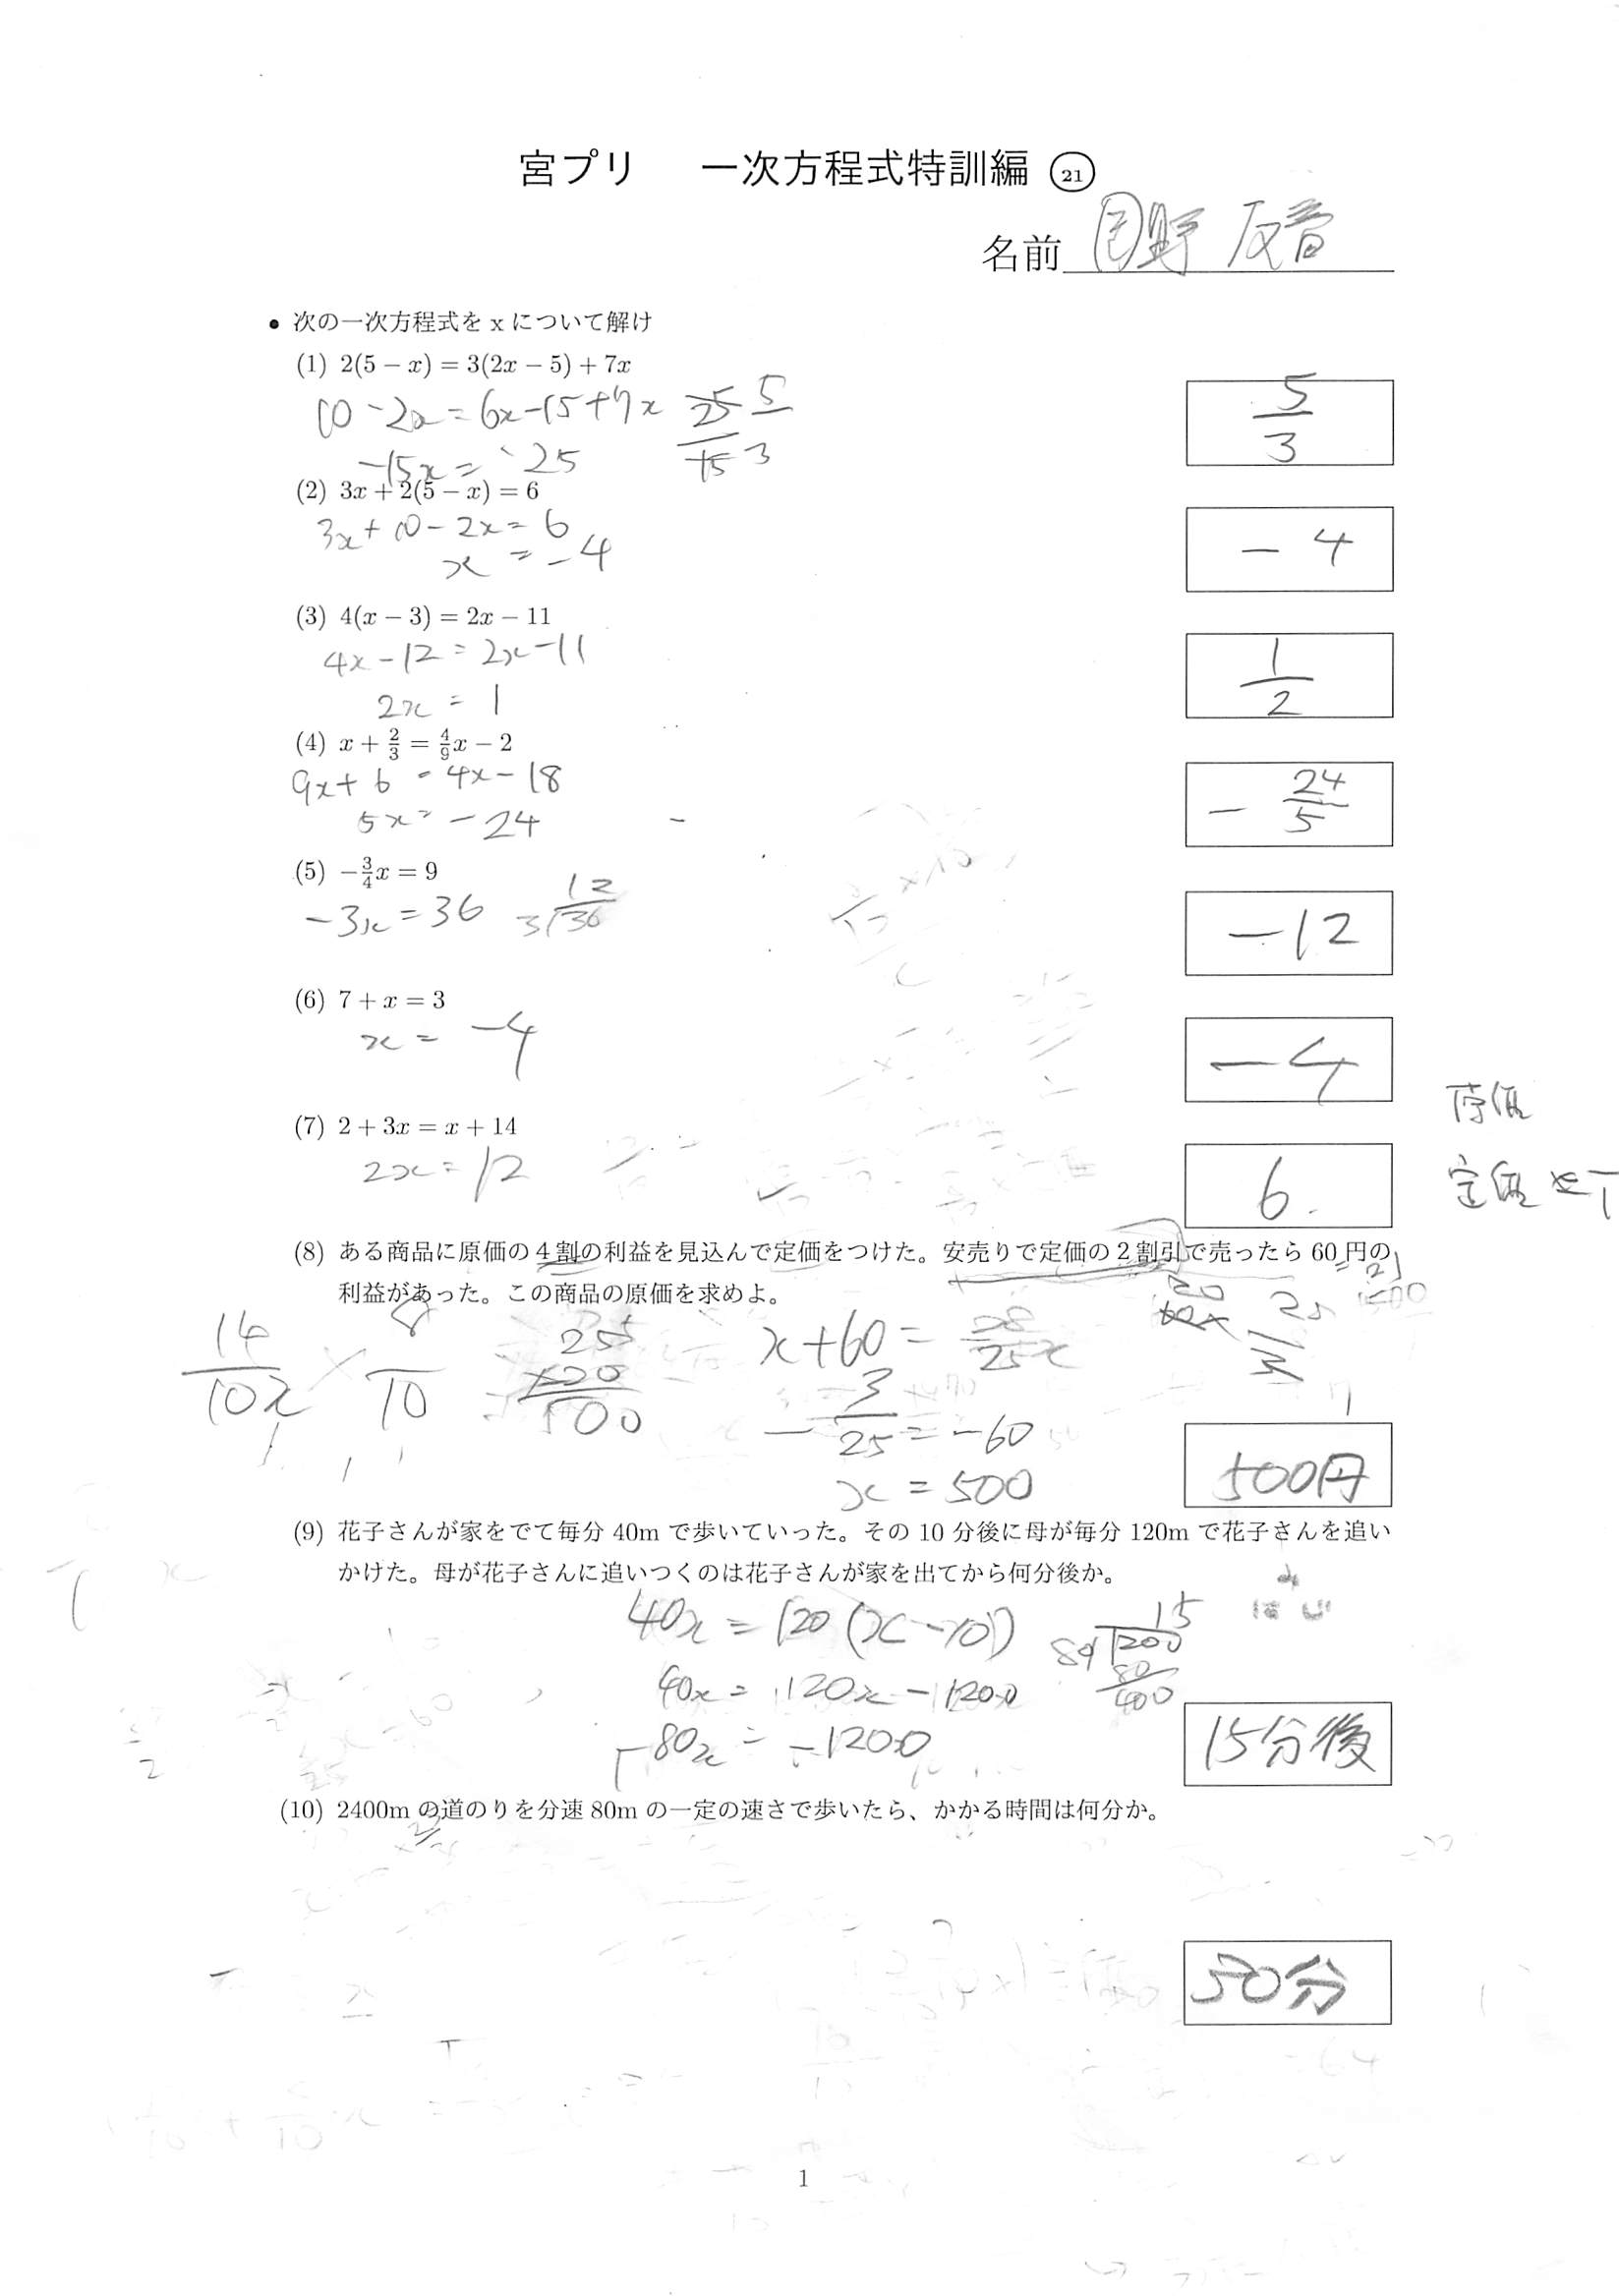 宮プリ 一次方程式特訓編 ㉑
名前
• 次の一次方程式を x について解け
(1) 2(5 − x) = 3(2x − 5) + 7x
10 − 2x = 6x − 15 + 7x 25 5
−15x = −25 15 3
5/3
(2) 3x + 2(5 − x) = 6
3x + 10 − 2x = 6
x = −4
−4
(3) 4(x − 3) = 2x − 11
4x − 12 = 2x − 11
2x = 1
1/2
(4) x + 2/3 = 4/9x − 2
9x + 6 = 4x − 18
5x = −24
− 24/5
(5) −3/4x = 9
−3x = 36 12
3 36
−12
(6) 7 + x = 3
x = −4
−4
原価
(7) 2 + 3x = x + 14
定価
2x = 12
6
(8) ある商品に原価の 4 割の利益を見込んで定価をつけた。安売りで定価の 2 割引で売ったら 60 円の
利益があった。この商品の原価を求めよ。
14/10x × 8/10
25
×20
500
x + 60 = 28/25x
− 3/25 = −60
x = 500
500円
(9) 花子さんが家をでて毎分 40m で歩いていった。その 10 分後に母が毎分 120m で花子さんを追い
かけた。母が花子さんに追いつくのは花子さんが家を出てから何分後か。
み
はじ
40x = 120(x − 10)
15
80 1200
80
400
40x = 120x − 1200
−80x = −1200
15分後
(10) 2400m の道のりを分速 80m の一定の速さで歩いたら、かかる時間は何分か。
30分
1